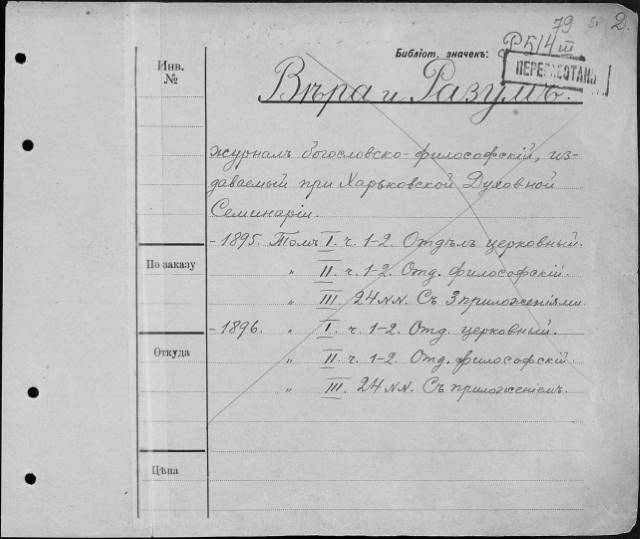 79 2.
Библіот. значекъ: P514 III
ПЕРЕРАБОТАНО
Инв.
№
Вѣра и Разумъ.
журналъ богословско-философскій, из-
даваемый при Харьковской Духовной
Семинаріи.
- 1895. Томъ I. ч. 1-2. Отдѣлъ церковный.
По заказу
„ II. ч. 1-2. Отд. философскій.
„ III. 24 NN. Съ 3 приложеніями.
- 1896. „ I. ч. 1-2. Отд. церковный.
Откуда
„ II. ч. 1-2. Отд. философскій.
„ III. 24 NN. Съ приложеніемъ.
Цѣна